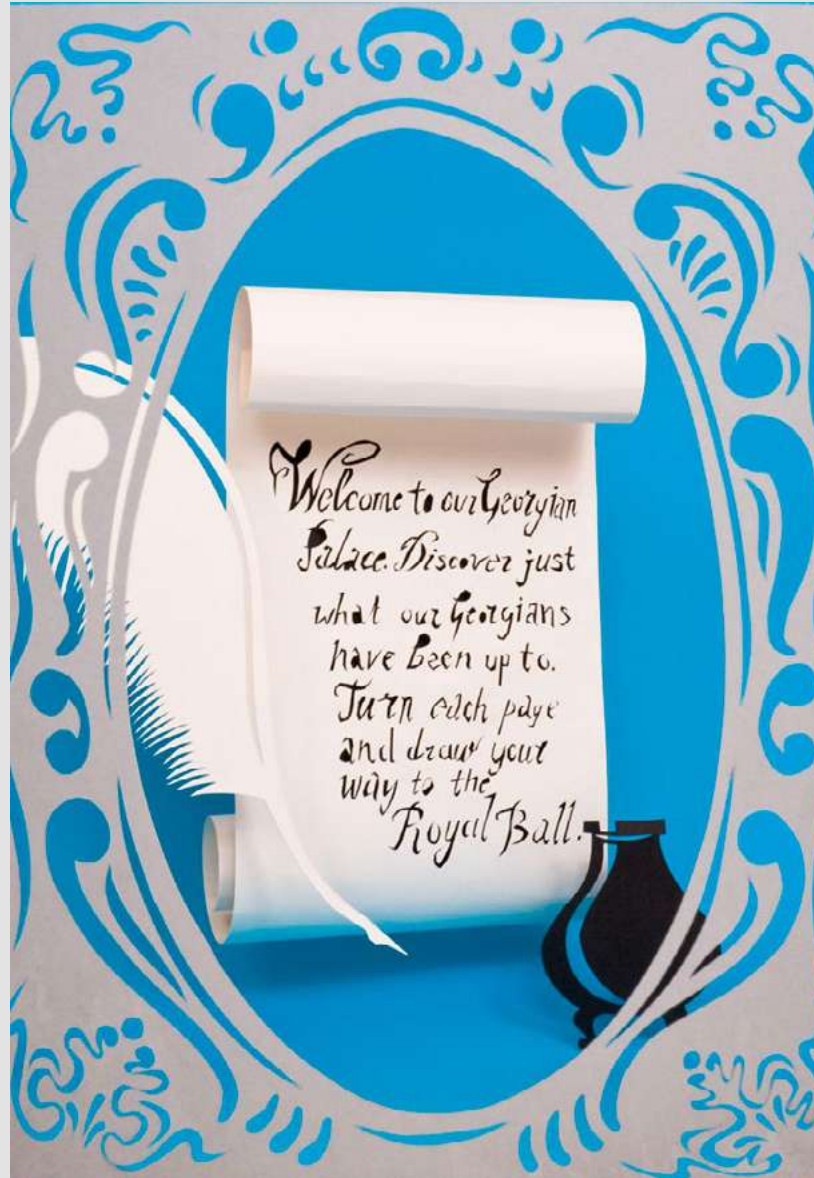 Welcome to our Georgian
Palace. Discover just
what our Georgians
have been up to.
Turn each page
and draw your
way to the
Royal Ball.